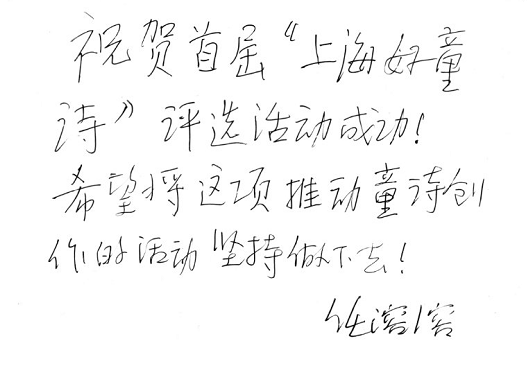 祝贺首届“上海好童
诗”评选活动成功!
希望将这项推动童诗创
作的活动坚持做下去!
任溶溶